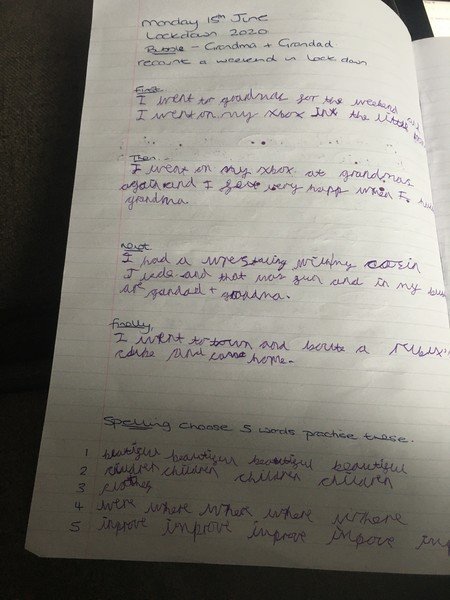 Monday 15th June
Lockdown 2020
Bubble - Grandma + Grandad
recount a weekend in lockdown
First
I went to grandmas for the weekend
I went on my xbox in the little
Then
I went on my xbox at grandmas
again and I felt very happ when I
grandma.
Next
I had a wrestling with my cosin
Jude and that was fun and in my
are grandad + grandma.
finally,
I went to town and boute a rubix
cube and came home.
Spelling choose 5 words practise these.
1 beautiful beautiful beautiful beautiful
2 children children children children
3 clothes
4 were where where where where
5 improve improve improve impove imp